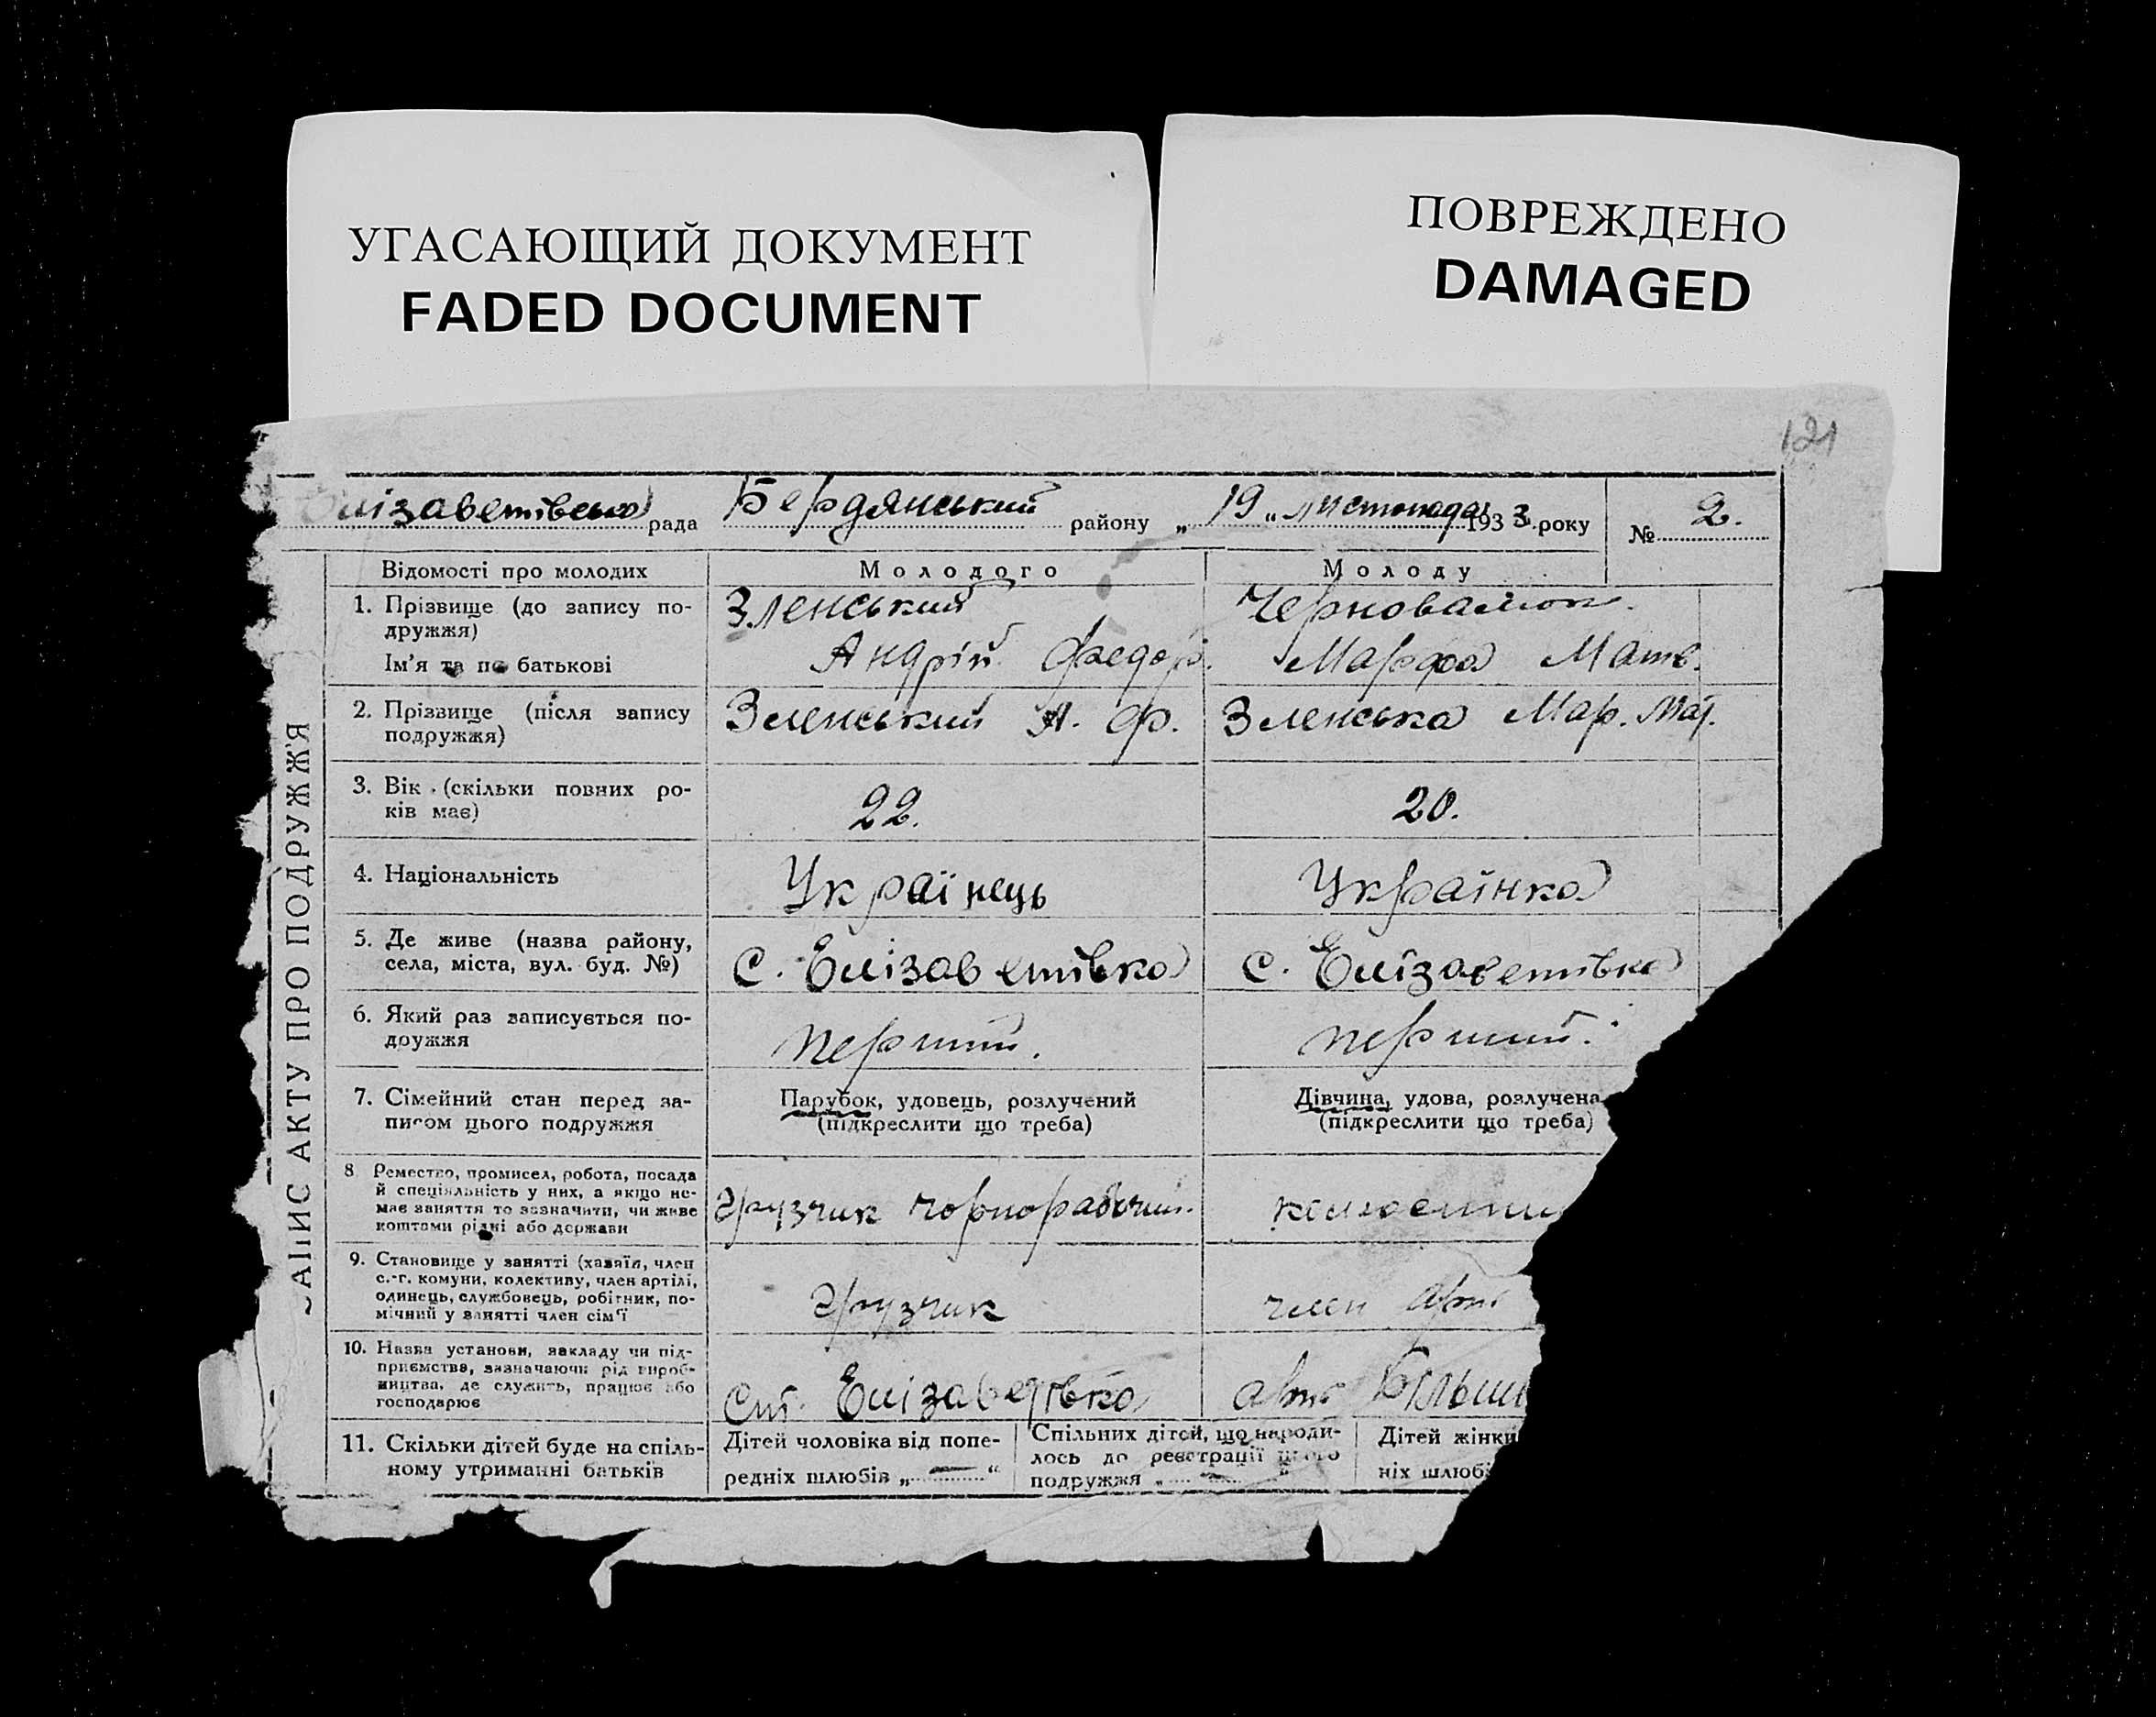 УГАСАЮЩИЙ ДОКУМЕНТ
FADED DOCUMENT
ПОВРЕЖДЕНО
DAMAGED
121
Елізаветівська рада Бердянський району „ 19 “ листопада 1933 року № 2.
ЗАПИС АКТУ ПРО ПОДРУЖЖЯ
Відомості про молодих Молодого Молоду
1. Прізвище (до запису по-
дружжя)
Зленський
Ім'я та по батькові
Андрій Федор. Марфа Матв.
2. Прізвище (після запису
подружжя)
Зленський А. Ф. Зленська Мар. Мат.
3. Вік (скільки повних ро-
ків має)
22. 20.
4. Національність Українець Українка
5. Де живе (назва району,
села, міста, вул. буд. №)
с. Елізаветівка с. Елізаветівка
6. Який раз записується по-
дружжя
перший. перший.
7. Сімейний стан перед за-
писом цього подружжя
Парубок, удовець, розлучений
(підкреслити що треба)
Дівчина, удова, розлучена
(підкреслити що треба)
8 Ремество, промисел, робота, посада
й спеціяльність у них, а якщо не-
має заняття то зазначити, чи живе
коштами рідні або держави
грузчик чорнорабочий.
9. Становище у занятті (хазяїн, член
с.-г. комуни, колективу, член артілі,
одинець, службовець, робітник, по-
мічний у занятті член сім'ї
грузчик член арт
10. Назва установи, закладу чи під-
приємства, зазначаючи рід вироб-
ництва, де служить, працює або
господарює
Ст. Елізаветівка арт. Більш
11. Скільки дітей буде на спіль-
ному утриманні батьків
Дітей чоловіка від попе-
редніх шлюбів „ — “
Спільних дітей, що народи-
лось до реєстрації цього
подружжя „ — “
Дітей жінки
ніх шлюбі